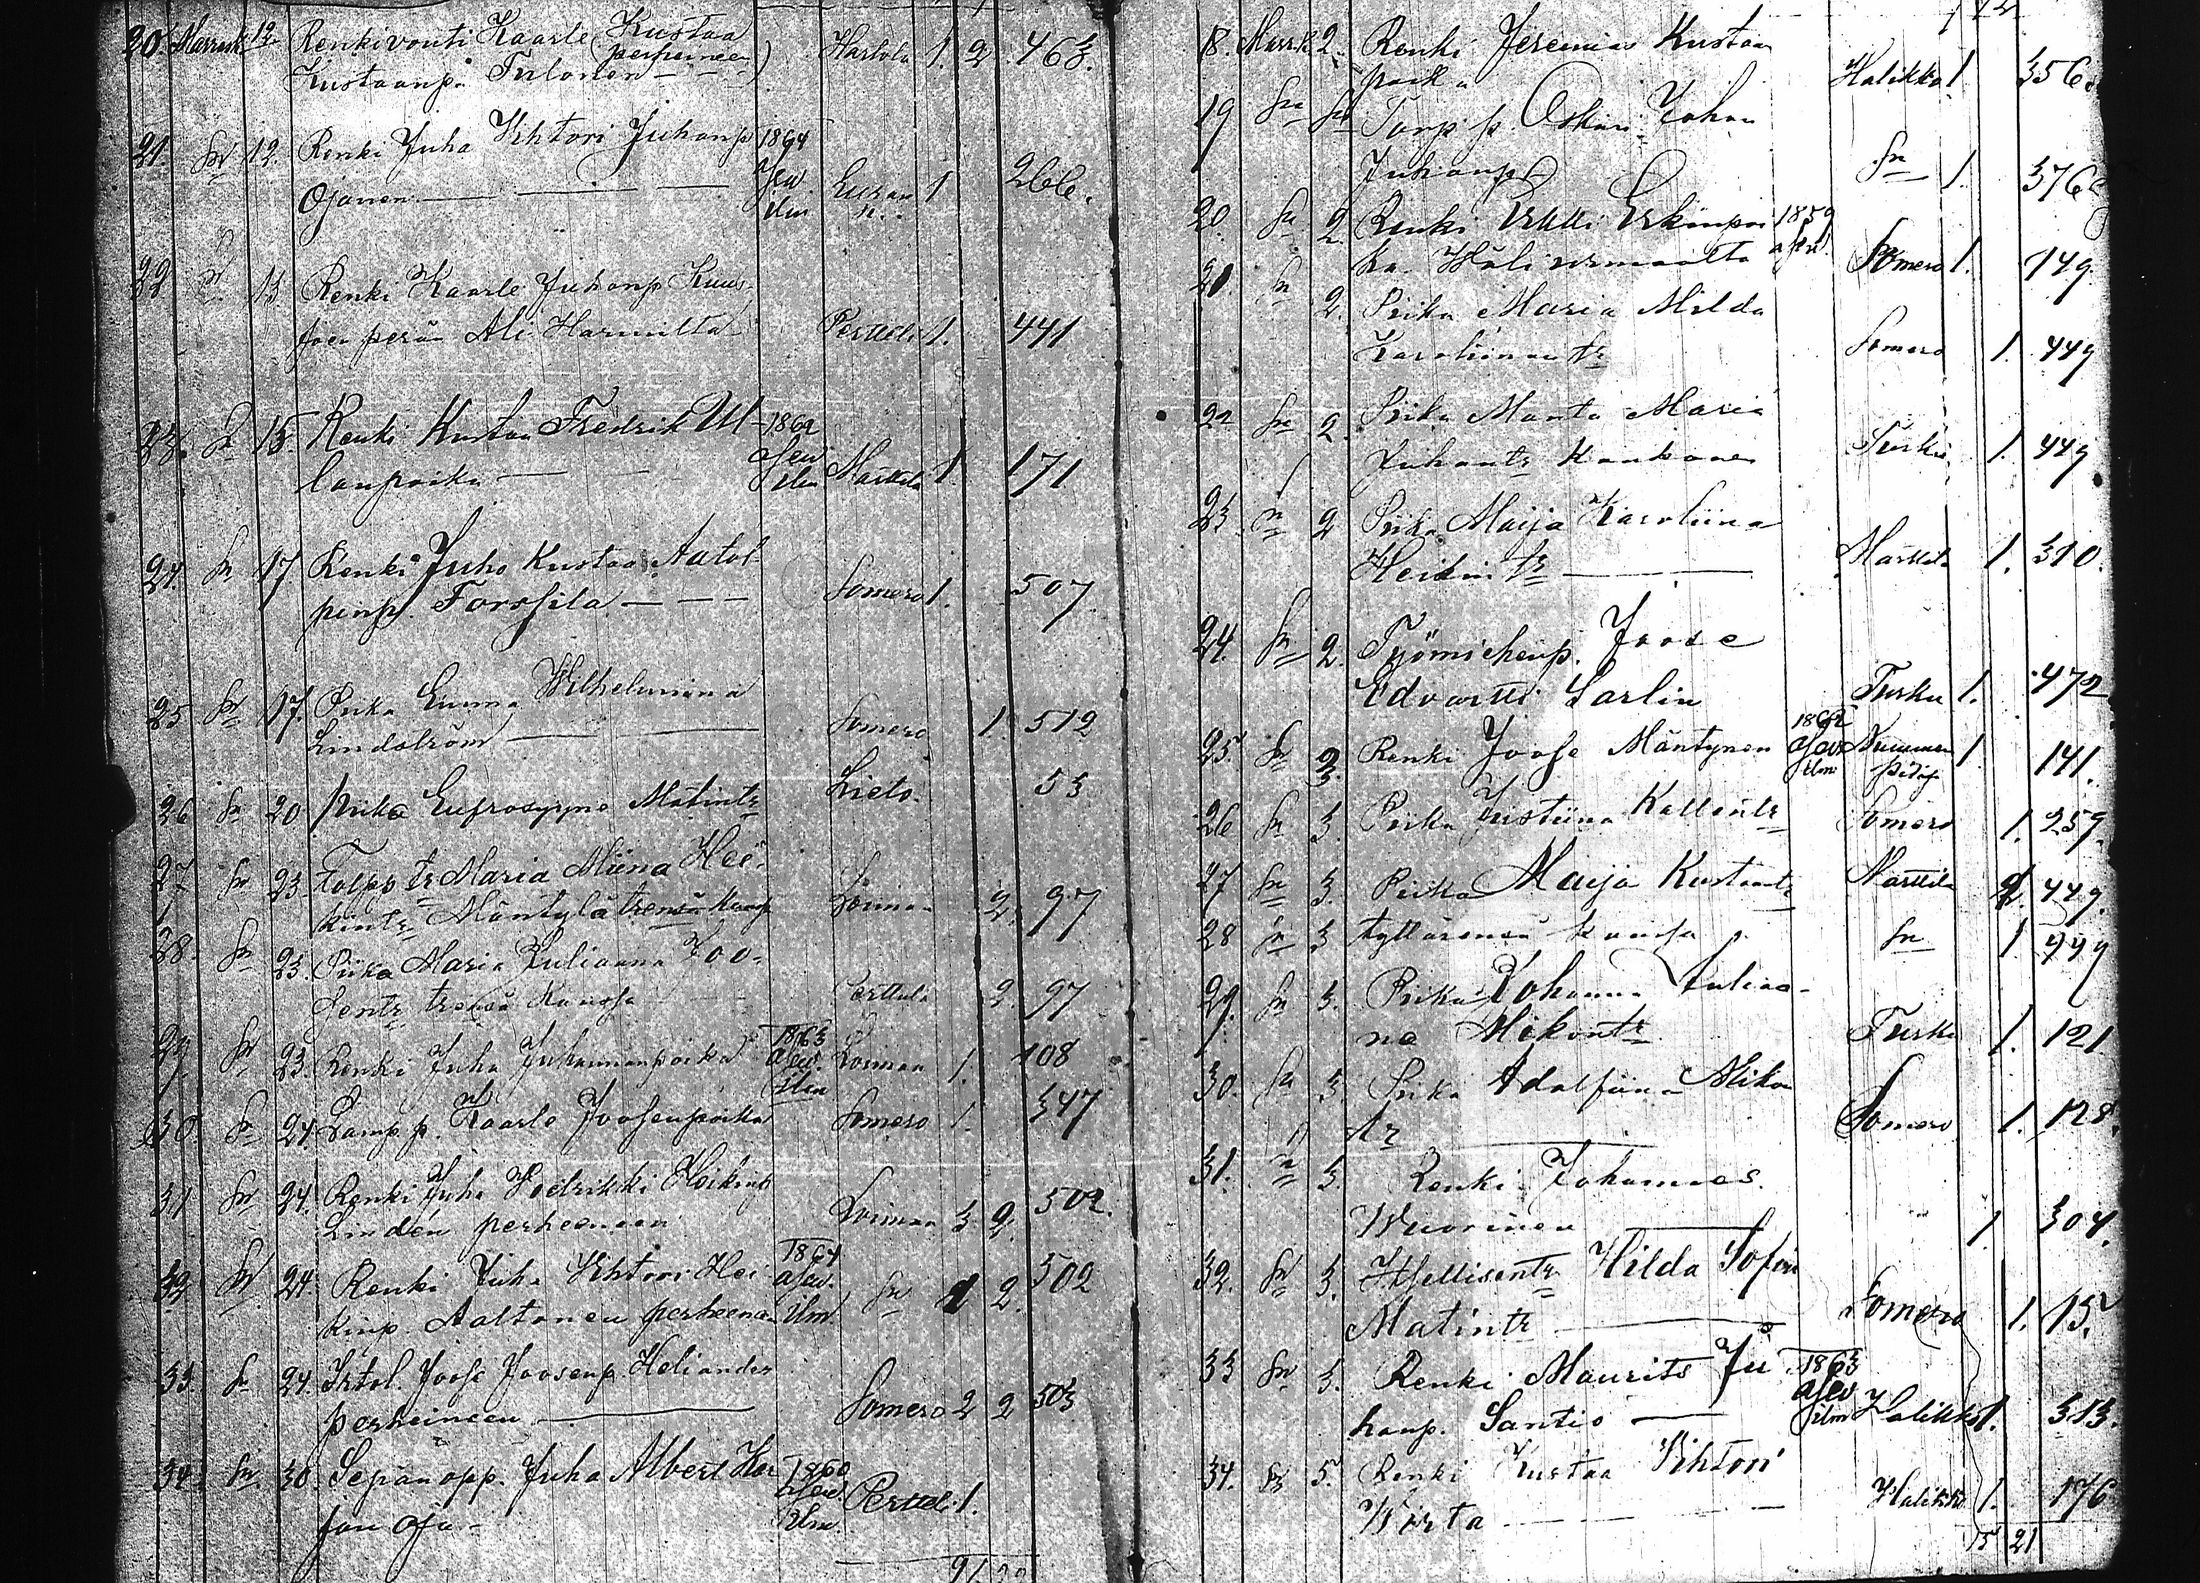 20 Marrask. 12 Renkivouti Kaarle Kustaa
Kustaanp. Tulonen perheineen Hartola 1. 2 463.
21. 12. Renki Juha Vihtori Juhanp 1864
Ojanen asev. ilm Euran 1 266.
22 13 Renki Kaarle Juhanp Kuus-
joen perän Ali Harmilta Perttel. 1. 441
23. 15. Renki Kustaa Fredrik Wil- 1862
lanpoika asev ilm Marttila 1. 171
24. Sn 17 Renki Juho Kustaa Aatol-
penp. Forssila Somero 1. 507
25 Sn 17. Piika Emma Wilhelmiina
Lindström Somero 1. 512
26 Sn 20 Piika Eufrosyyne Matintr Lieto. 53
27 Sn 23. Maria Miina Hei-
kintr Mäntylä trensä kanss Loimaa 2. 97
28. Sn 23. Piika Maria Juliaana Joo-
sentr trensä kanssa Perttula 2. 97
29 Sn 23. Renki Juha Juhannanpoika 1863 asev. ilm Loimaa 1. 108
30. Sn 24. Lamp.p. Kaarle Joosenpoika Somero 1. 347
31 Sn 24. Renki Juha Fredrikki Heikinp
Lindén perheeneen Loimaa 3 2. 502.
32 Sn 24. Renki Juha Vihtori Hei- 1864
kinp. Aaltonen perheenen asev. ilm. Sn 2 2. 502
33. Sn 24. Irtol. Joose Joosenp. Heliander
perheineen Somero 2 2 503
34. Sn. 30. Sepänopp. Juha Albert Kar 1860
jan oja asev. ilm. Perttel. 1.
18. Marrk 2. Renki Jeremias Kustaa
poika Halikko 1. 356.
19 Sn Sn Torp p. Oskari Johan
Juhanp Sn 1. 376
20. Sn 2. Renki Erkki Erkinpoi 1859
ka asev. Somero 1. 149.
21. Sn 2. Piika Maria Milda
Karoliinantr Somero 1. 449
22 Sn 2. Piika Manta Maria
Juhantr Kankanen Turku 1. 449
23. Sn 2 Piika Maija Karoliina
Heikintr Marttila 1. 310.
24. Sn 2. Työmiehenp. Joose
Edvartti Sarlin Turku 1. 472
25. Sn 3. Renki Joose Mäntynen 1862 asev. ilm Nummen pitäj 1. 141.
26 Sn 3. Piika Justiina Kallentr Somero 1. 259.
27 Sn 3. Piika Maija Kustaantr Marttila 1. 449.
28 Sn 3 tyttärensä kanssa Sn 1. 449
29. Sn 3. Piika Johanna Julia-
na Mikontr Turku 1. 121
30. Sn 3. Piika Adolfiina Mikon
tr Somero 1. 128.
31. Sn 3. Renki Johannes
Wuorinen 1 304.
32. Sn 3. Itsellisentr Hilda Sofia
Matintr Somero 1. 15.
33 Sn 3. Renki Maurits Ju 1863
hanp. Santio asev ilm Halikko 1. 313.
34. Sn 5. Renki Kustaa Vihtori
Wirta Halikko 1. 176
15 21